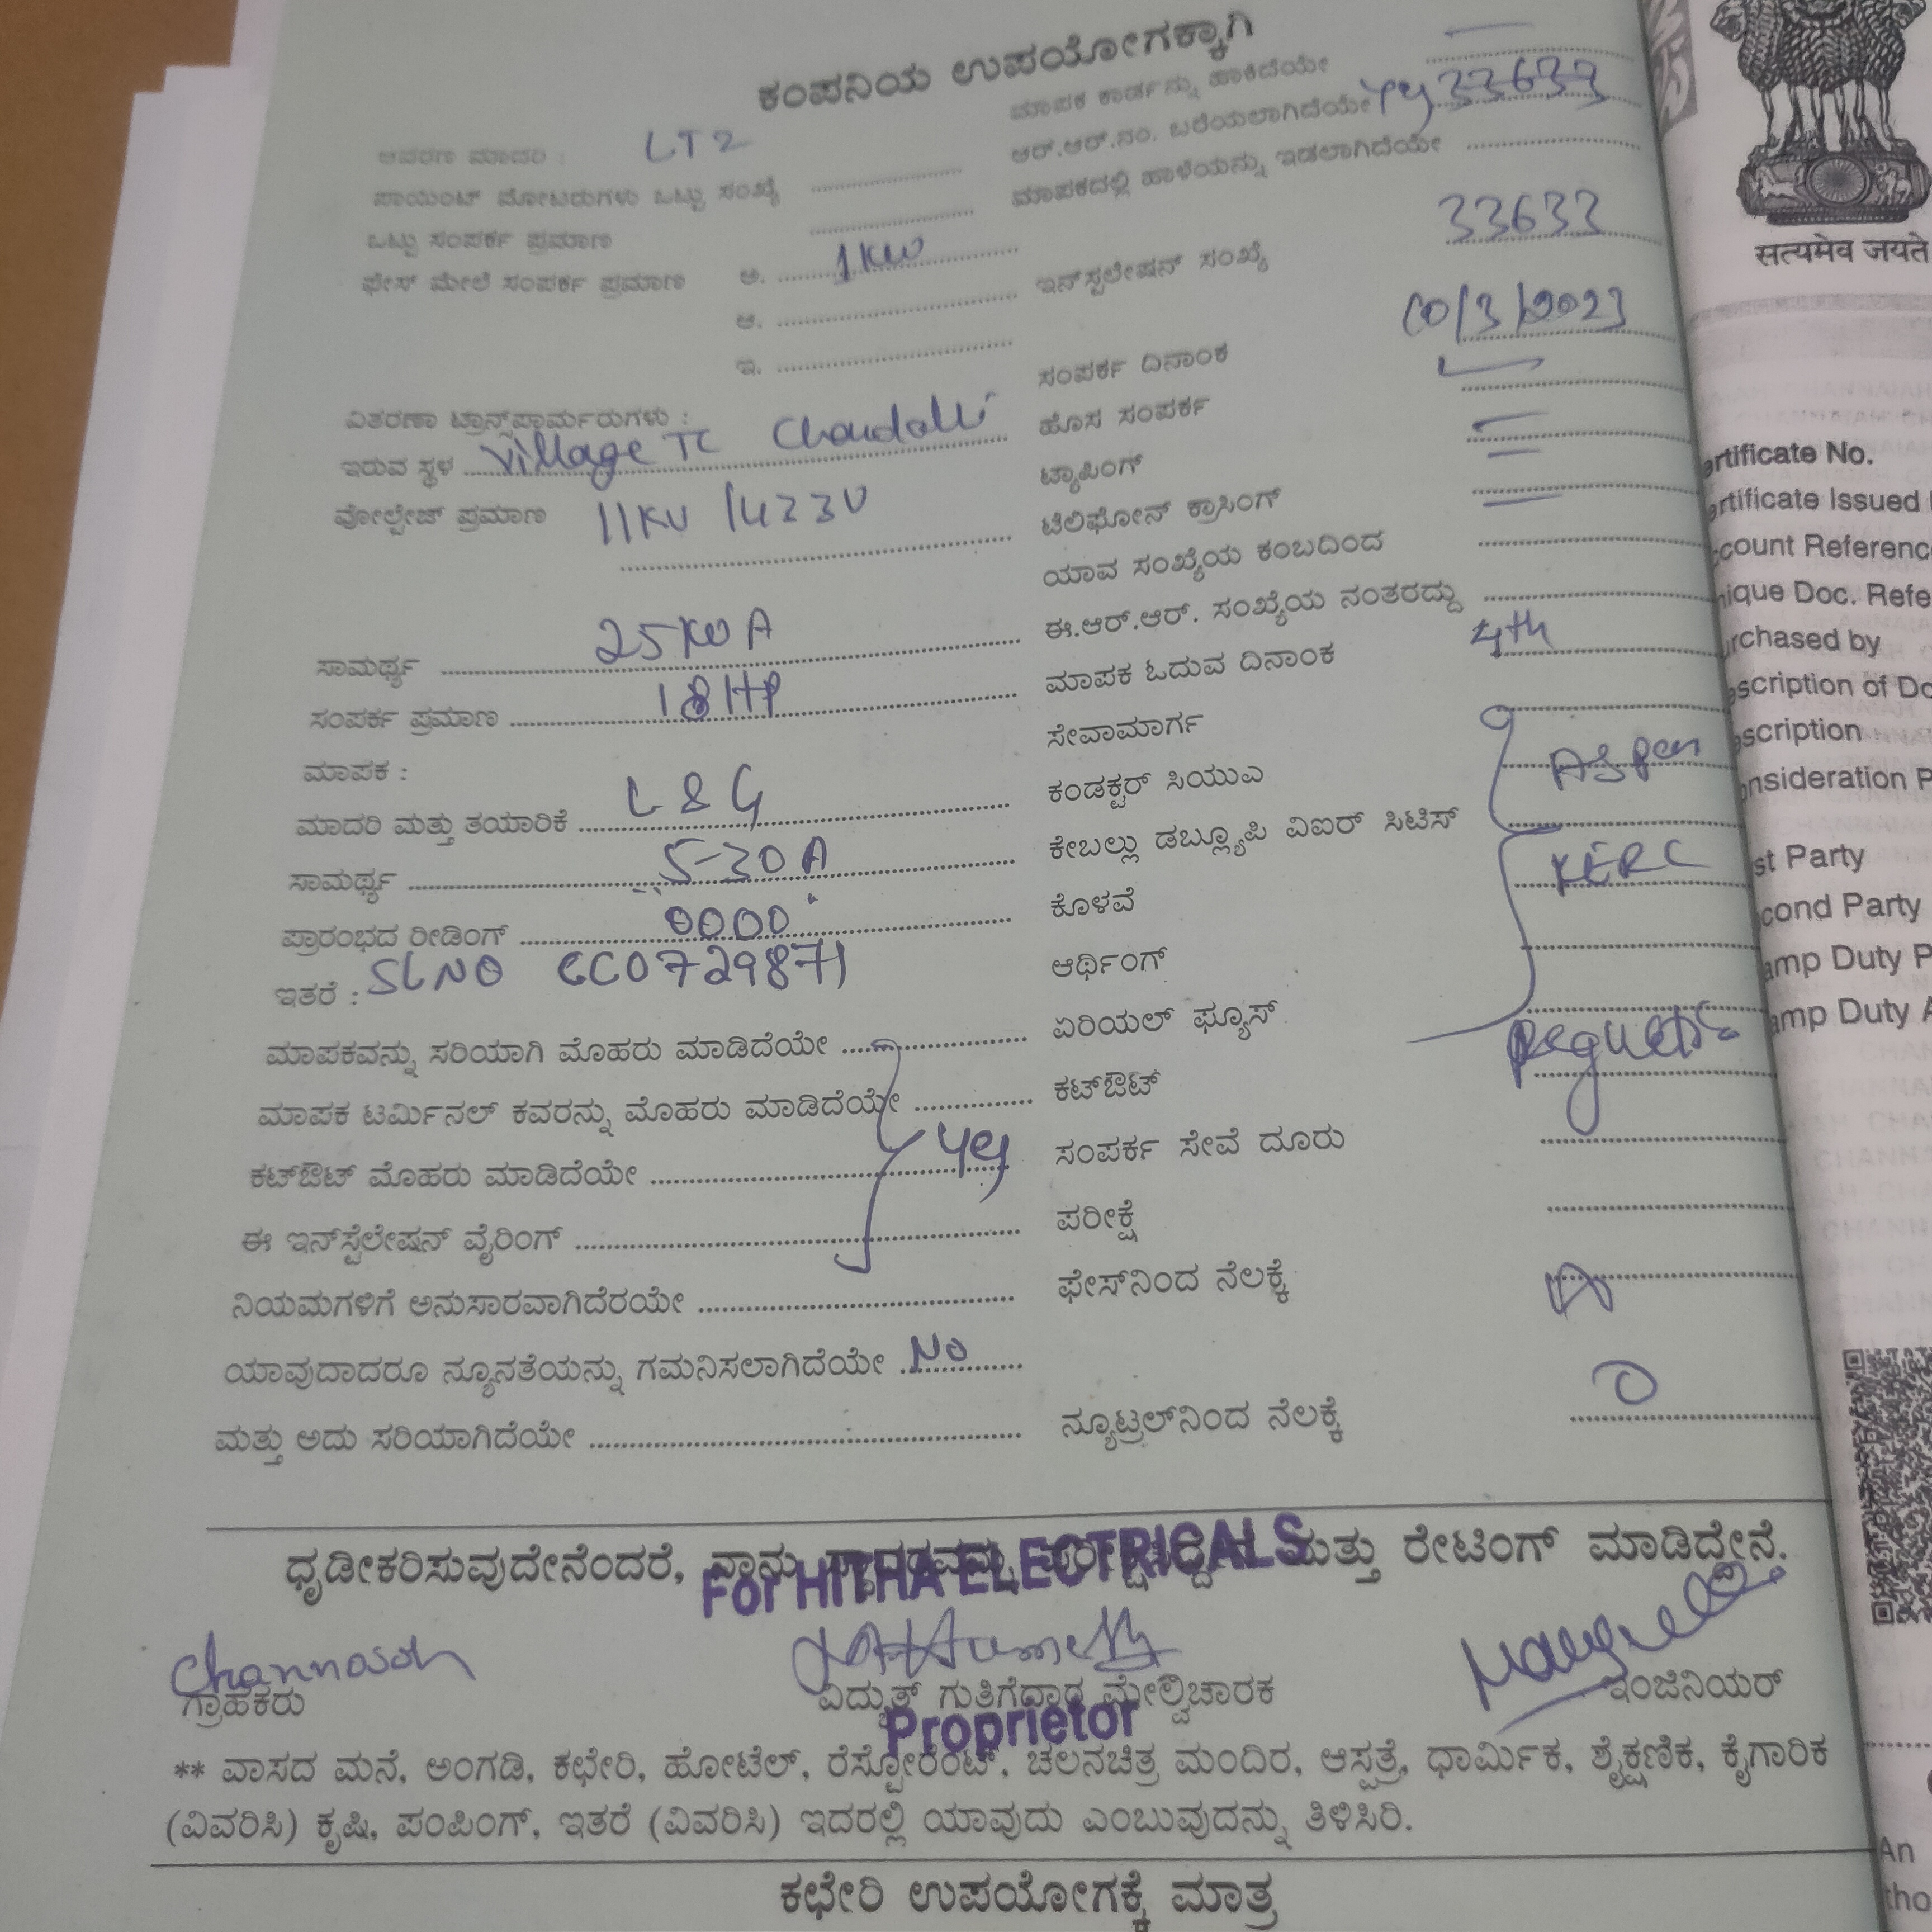 ಕಂಪನಿಯ ಉಪಯೋಗಕ್ಕಾಗಿ
ಆವರಣ ಮಾದರಿ : LT2
ಪಾಯಿಂಟ್ ಮೋಟರುಗಳು ಒಟ್ಟು ಸಂಖ್ಯೆ
ಒಟ್ಟು ಸಂಪರ್ಕ ಪ್ರಮಾಣ
ಫೇಸ್ ಮೇಲೆ ಸಂಪರ್ಕ ಪ್ರಮಾಣ ಅ. 1KW
ಆ.
ಇ.
ವಿತರಣಾ ಟ್ರಾನ್ಸ್‌ಫಾರ್ಮರುಗಳು :
ಇರುವ ಸ್ಥಳ Village TC
ವೋಲ್ಟೇಜ್ ಪ್ರಮಾಣ 11KV /433V
ಸಾಮರ್ಥ್ಯ 25KVA
ಸಂಪರ್ಕ ಪ್ರಮಾಣ 18HP
ಮಾಪಕ :
ಮಾದರಿ ಮತ್ತು ತಯಾರಿಕೆ L&G
ಸಾಮರ್ಥ್ಯ 5-30A
ಪ್ರಾರಂಭದ ರೀಡಿಂಗ್ 0000
ಇತರೆ : SLNO CC0729871
ಮಾಪಕವನ್ನು ಸರಿಯಾಗಿ ಮೊಹರು ಮಾಡಿದೆಯೇ
ಮಾಪಕ ಟರ್ಮಿನಲ್ ಕವರನ್ನು ಮೊಹರು ಮಾಡಿದೆಯೇ
ಕಟ್‌ಔಟ್ ಮೊಹರು ಮಾಡಿದೆಯೇ yes
ಈ ಇನ್‌ಸ್ಟೆಲೇಷನ್ ವೈರಿಂಗ್
ನಿಯಮಗಳಿಗೆ ಅನುಸಾರವಾಗಿದೆರಯೇ
ಯಾವುದಾದರೂ ನ್ಯೂನತೆಯನ್ನು ಗಮನಿಸಲಾಗಿದೆಯೇ No
ಮತ್ತು ಅದು ಸರಿಯಾಗಿದೆಯೇ
ಮಾಪಕ ಕಾರ್ಡನ್ನು ಹಾಕಿದೆಯೇ
ಆರ್.ಆರ್.ನಂ. ಬರೆಯಲಾಗಿದೆಯೇ 33633
ಮಾಪಕದಲ್ಲಿ ಹಾಳೆಯನ್ನು ಇಡಲಾಗಿದೆಯೇ
ಇನ್‌ಸ್ಟಲೇಷನ್ ಸಂಖ್ಯೆ 33633
ಸಂಪರ್ಕ ದಿನಾಂಕ 10/3/2023
ಹೊಸ ಸಂಪರ್ಕ
ಟ್ಯಾಪಿಂಗ್
ಟೆಲಿಫೋನ್ ಕ್ರಾಸಿಂಗ್
ಯಾವ ಸಂಖ್ಯೆಯ ಕಂಬದಿಂದ
ಈ.ಆರ್.ಆರ್. ಸಂಖ್ಯೆಯ ನಂತರದ್ದು
ಮಾಪಕ ಓದುವ ದಿನಾಂಕ 4th
ಸೇವಾಮಾರ್ಗ
ಕಂಡಕ್ಟರ್ ಸಿಯುಎ As per
ಕೇಬಲ್ಲು ಡಬ್ಲ್ಯೂಪಿ ವಿಐರ್ ಸಿಟಿಸ್
ಕೊಳವೆ KERC
ಆರ್ಥಿಂಗ್
ಏರಿಯಲ್ ಫ್ಯೂಸ್
ಕಟ್‌ಔಟ್
ಸಂಪರ್ಕ ಸೇವೆ ದೂರು
ಪರೀಕ್ಷೆ
ಫೇಸ್‌ನಿಂದ ನೆಲಕ್ಕೆ
ನ್ಯೂಟ್ರಲ್‌ನಿಂದ ನೆಲಕ್ಕೆ
ಧೃಡೀಕರಿಸುವುದೇನೆಂದರೆ, ನಾನು ಮತ್ತು ರೇಟಿಂಗ್ ಮಾಡಿದ್ದೇನೆ.
For HITHA ELECTRICALS
ಗ್ರಾಹಕರು
ವಿದ್ಯುತ್ ಗುತಿಗೆದಾರ ಮೇಲ್ವಿಚಾರಕ
ಇಂಜಿನಿಯರ್
Proprietor
** ವಾಸದ ಮನೆ, ಅಂಗಡಿ, ಕಛೇರಿ, ಹೋಟೆಲ್, ರೆಸ್ಟೋರೆಂಟ್, ಚಲನಚಿತ್ರ ಮಂದಿರ, ಆಸ್ಪತ್ರೆ, ಧಾರ್ಮಿಕ, ಶೈಕ್ಷಣಿಕ, ಕೈಗಾರಿಕ
(ವಿವರಿಸಿ) ಕೃಷಿ, ಪಂಪಿಂಗ್, ಇತರೆ (ವಿವರಿಸಿ) ಇದರಲ್ಲಿ ಯಾವುದು ಎಂಬುವುದನ್ನು ತಿಳಿಸಿರಿ.
ಕಛೇರಿ ಉಪಯೋಗಕ್ಕೆ ಮಾತ್ರ
सत्यमेव जयते
ertificate No.
ertificate Issued
ccount Referenc
nique Doc. Refe
urchased by
escription of Do
escription
onsideration P
st Party
cond Party
amp Duty P
amp Duty A